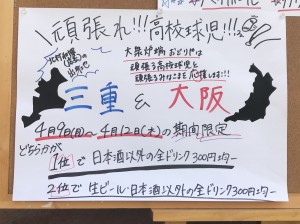 頑張れ!!!高校球児!!!
大衆炉端おどりやは
頑張る高校球児と
頑張るみなさまを応援します!!!
三重 & 大阪
4月9日(月)〜4月12日(木)の期間限定
どちらかが
1位で日本酒以外の全ドリンク300円均一
2位で生ビール・日本酒以外の全ドリンク300円均一